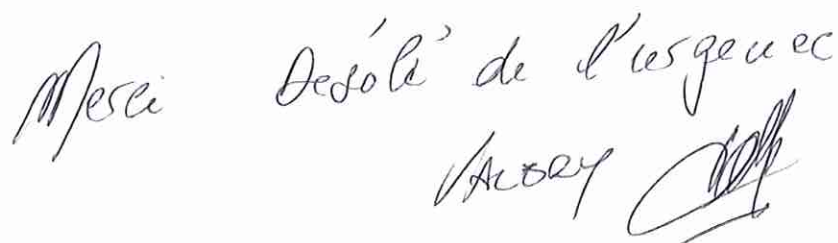 Merci Désolé de l'urgence
VALORY